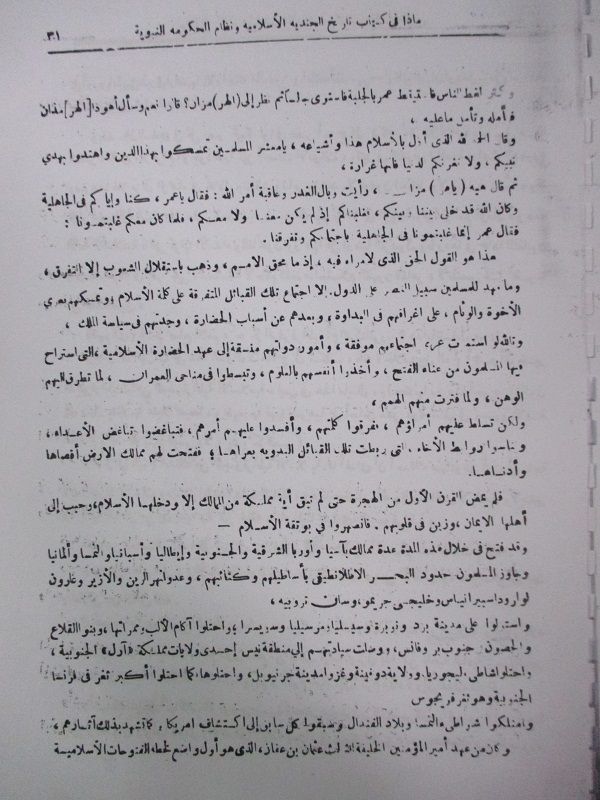 ماذا في كتاب تاريخ الجنديه الأسلاميه ونظام الحكومه النبوية ٣١
وكثر لغط الناس فاستيقظ عمر بالجلبة فاستوى جالسا ثم نظر إلى (الهر) مزان؟ قالوا نعم وسأل أهوذا [الهر] مزان
فأمله وتأمل ما عليه ،
وقال الحمد لله الذى أذل بالأسلام هذا وأشياعه ، يا معشر المسلمين تمسكوا بهذا الدين واهتدوا بهدي
نبيكم ، ولا تغرنكم الدنيا فأنها غرارة ،
ثم قال هيه (ياهر) مزان ، رأيت وبال الغدر وعاقبة أمر الله : فقال ياعمر ، كنا وإياكم فى الجاهلية
وكان الله قد خلى بيننا وبينكم ، فغلبناكم إذ لم يكن معنا ولا معكم ، فلما كان معكم غلبتمونا :
فقال عمر إنما غلبتمونا فى الجاهلية باجتماعكم وتفرقنا .
هذا هو القول الحق الذى لامراء فيه ، إذ ما محق الامم ، وذهب باستقلال الشعوب إلا التفرق ،
وما مهد للمسلمين سبيل النصر على الدول إلا اجتماع تلك القبائل المتفرقة على كلمة الأسلام ، وتمسكهم بعرى
الأخوة والوئام ، على اغراقهم فى البداوة ، وبعدهم عن أسباب الحضارة ، وجدتهم فى سياسة الملك ،
وتالله لو استمرت عرى اجتماعهم موفقة ، وأمور دولتهم منسقة إلى عهد الحضارة الأسلامية ، التى استراح
فيها المسلمون من عناء الفتح ، وأخذوا أنفسهم بالعلوم ، وتبسطوا فى مناحى العمران ، لما تطرق اليهم
الوهن ، ولما فترت منهم الهمم ،
ولكن تسلط عليهم أمراؤهم ، ففرقوا كلمتهم ، وأفسدوا عليهم أمرهم ، فتباغضوا تباغض الأعداء ،
وتناسوا روابط الأخاء التى ربطت تلك القبائل البدويه بعراها ، ففتحت لهم ممالك الارض أقصاها
وأدناها .
فلم يمض القرن الأول من الهجرة حتى لم تبق أية مملكة من الممالك إلا ودخلها الأسلام ، وحبب إلى
أهلها الايمان ، وزين فى قلوبهم . فانصهروا في بوتقة الأسلام —
وقد فتح في خلال هذه المدة عدة ممالك بآسيا وأوربا الشرقية والجنوبية وإيطاليا وأسبانيا والنمسا وألمانيا
وجاوز المسلمون حدود البحر الاطلانطيق بأساطيلهم وكتائبهم ، وعدوا نهر الرين والأزير وغارون
لوار وداسبيرانياس وخليجى جريمو ، وسان تروبيه ،
واستولوا على مدينة برد ونوبرة وسيسليا ومرسيليا وسويسرا ، واحتلوا آكام الألب وممراتها ، وبنوا القلاع
والحصون جنوب بر وفانس ، ووصلت سيادتهم إلى منطقة نيس إحدى ولايات مملكة «آرل» الجنوبية ،
واحتلوا شاطى ليجوريا . وولاية دوفينة وغزوا مدينة جرنيوبل ، واحتلوها ، كما احتلوا أكبر ثغر فى فرنسا
الجنوبية وهو ثغر فريجوس
وامتلكوا شواطى النمسا وبلاد الفندال وسبقوا كل سابق إلى اكتشاف امريكا ، كما تشهد بذلك آثارهم ،
وكان من عهد أمير المؤمنين الخليفة الثالث عثمان بن عفان ، الذى هو أول واضع لخطه الفتوحات الأسلامية